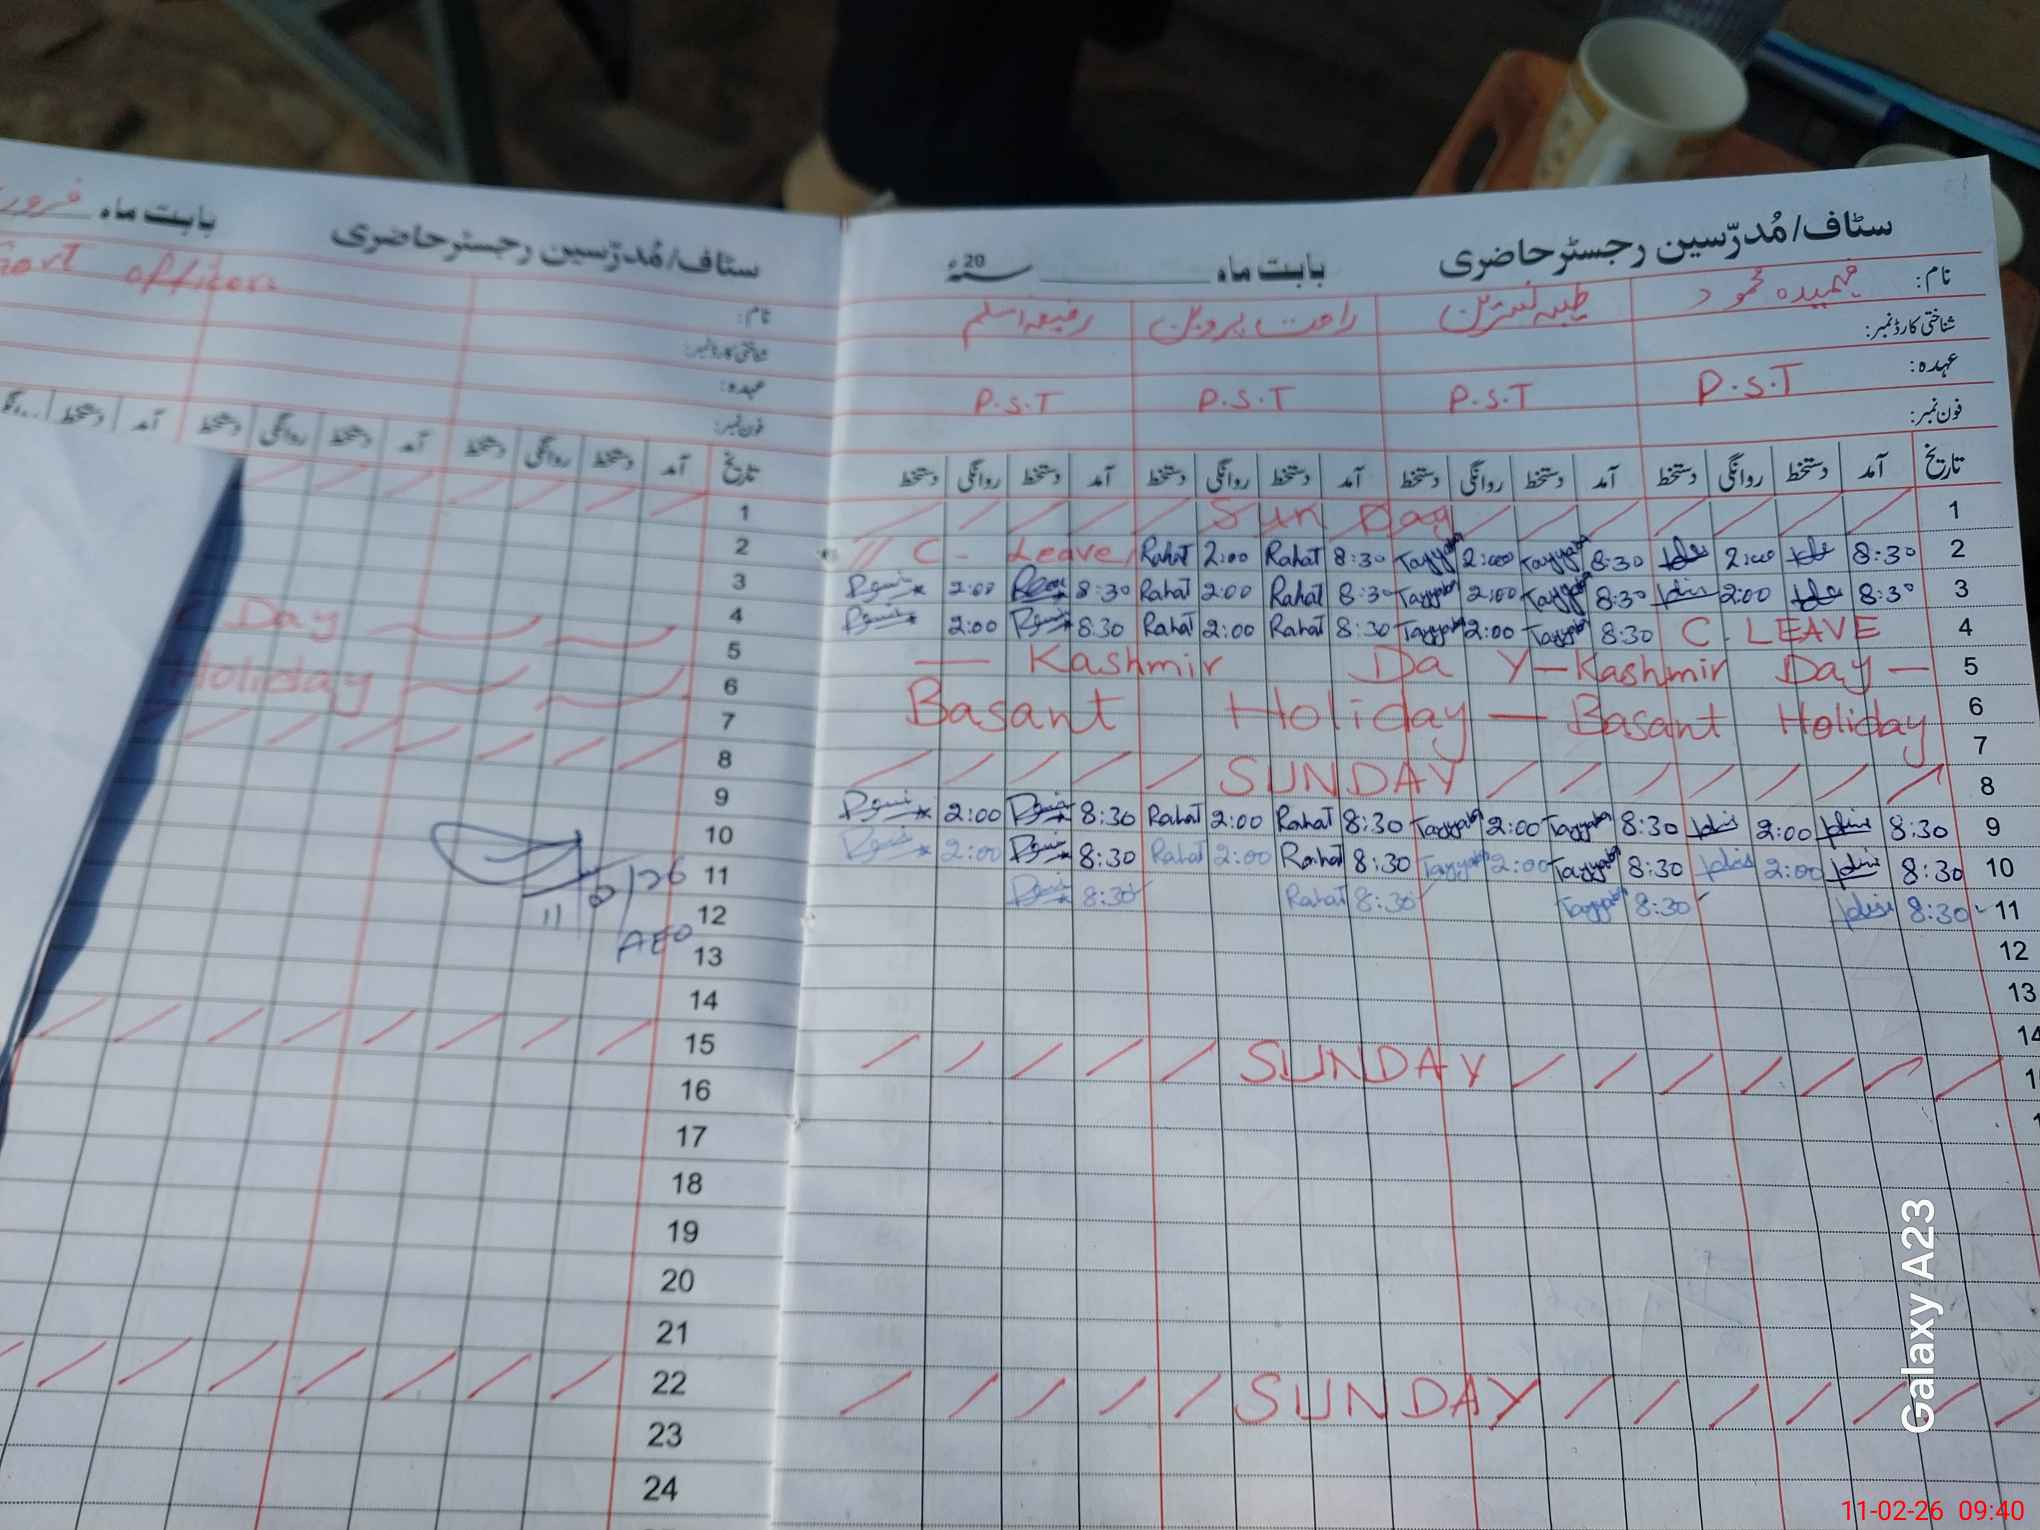 سٹاف/مُدرّسین رجسٹر حاضری بابت ماہ ______ 20ء
نام: فہمیدہ محمود طیبہ نسرین راحت پروین رفیعہ اسلم
شناختی کارڈ نمبر:
عہدہ: P.S.T P.S.T P.S.T P.S.T
فون نمبر:
تاریخ آمد دستخط روانگی دستخط آمد دستخط روانگی دستخط آمد دستخط روانگی دستخط آمد دستخط روانگی دستخط
Sun Day 1
// C - Leave Rahat 2:00 Rahat 8:30 Tayyaba 2:00 Tayyaba 8:30 2:00 8:30 2
2:00 8:30 Rahat 2:00 Rahat 8:30 Tayyaba 2:00 Tayyaba 8:30 2:00 8:30 3
2:00 8:30 Rahat 2:00 Rahat 8:30 Tayyaba 2:00 Tayyaba 8:30 C. LEAVE 4
— Kashmir Da Y — Kashmir Day — 5
Basant Holiday — Basant Holiday 6
7
SUNDAY 8
2:00 8:30 Rahat 2:00 Rahat 8:30 Tayyaba 2:00 Tayyaba 8:30 2:00 8:30 9
2:00 8:30 Rahat 2:00 Rahat 8:30 Tayyaba 2:00 Tayyaba 8:30 2:00 8:30 10
8:30 Rahat 8:30 Tayyaba 8:30 8:30 11
12
13
14
SUNDAY
SUNDAY
سٹاف/مُدرّسین رجسٹر حاضری بابت ماہ
officers
نام:
شناختی کارڈ نمبر:
عہدہ:
فون نمبر:
تاریخ آمد دستخط روانگی دستخط آمد دستخط روانگی دستخط آمد دستخط
1
2
3
Day 4
5
Holiday 6
7
8
9
10
11
11 12
AEO 13
14
15
16
17
18
19
20
21
22
23
24
Galaxy A23
11-02-26 09:40